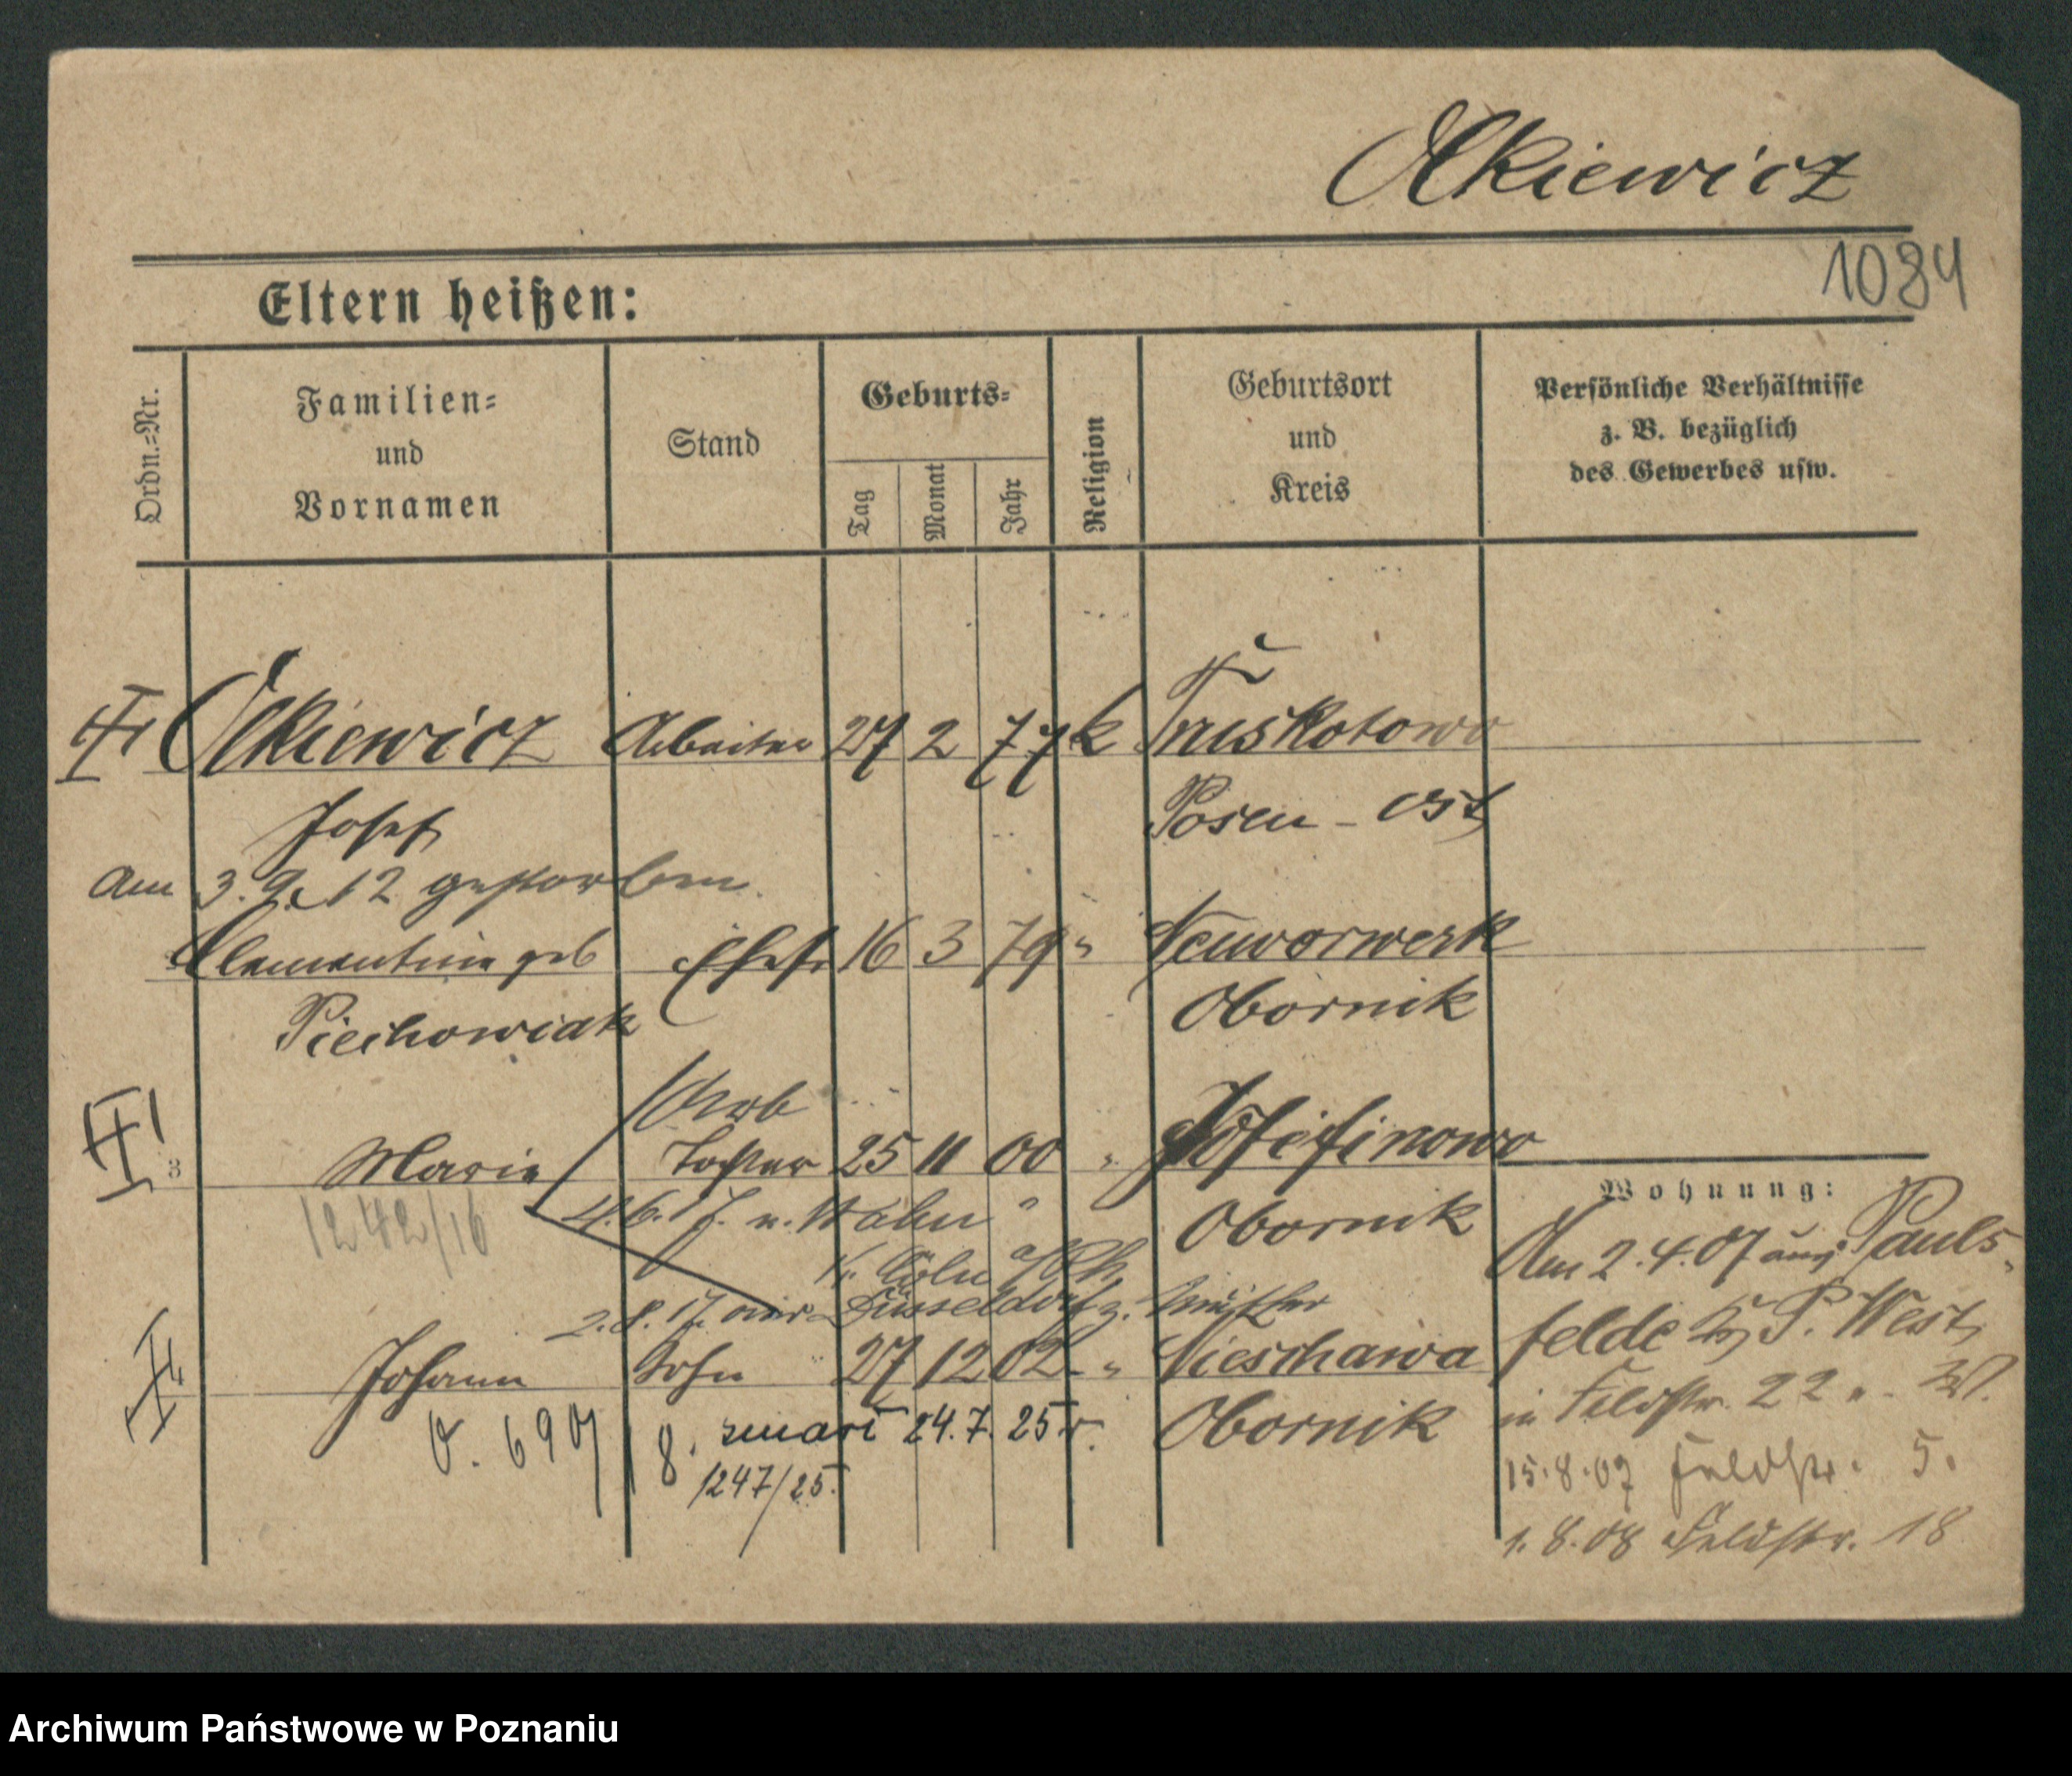 Olkiewicz
1084
Eltern heißen:
Ordn.=Nr.
Familien=
und
Vornamen
Stand
Geburts=
Tag
Monat
Jahr
Religion
Geburtsort
und
Kreis
Persönliche Verhältnisse
z. B. bezüglich
des Gewerbes usw.
Olkiewicz Arbeiter 27 2 77 k Truskotowo
Josef Posen - Ost
am 3. 9. 12 gestorben.
Clementine geb Ehefr 16 3 79 " Neuvorwerk
Piechowiak Obornik
Arb
3 Marie Tochter 25 11 00 " Josefinowo
1242/16 4.6.17. n. " Obornik
Kr. Cöln a/Rh
2.8.17. Düsseldorf z. Mutter
Johann Sohn 27 12 02 " Nieschawa
Obornik
zmarł 24.7.25 r.
1247/25.
Wohnung:
Am 2.4.07 aus Pauls-
felde P. West
in Feldstr. 22
15.8.07 Feldstr. 5.
1.8.08 Feldstr. 18
Archiwum Państwowe w Poznaniu